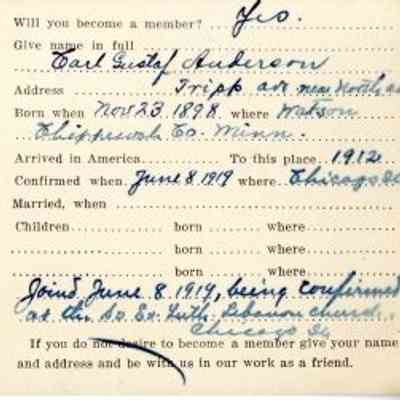 Will you become a member? Yes.
Give name in full
Carl Gustaf Anderson
Address Tripp ave near North a
Born when Nov 23 1898 where Watson
Chippewah Co. Minn.
Arrived in America To this place 1912
Confirmed when June 8 1919 where Chicago
Married, when
Children born where
born where
born where
Joind June 8 1919, being confirmed
at the Sv. Ev. Luth. Lebanon church,
Chicago
If you do not desire to become a member give your name
and address and be with us in our work as a friend.